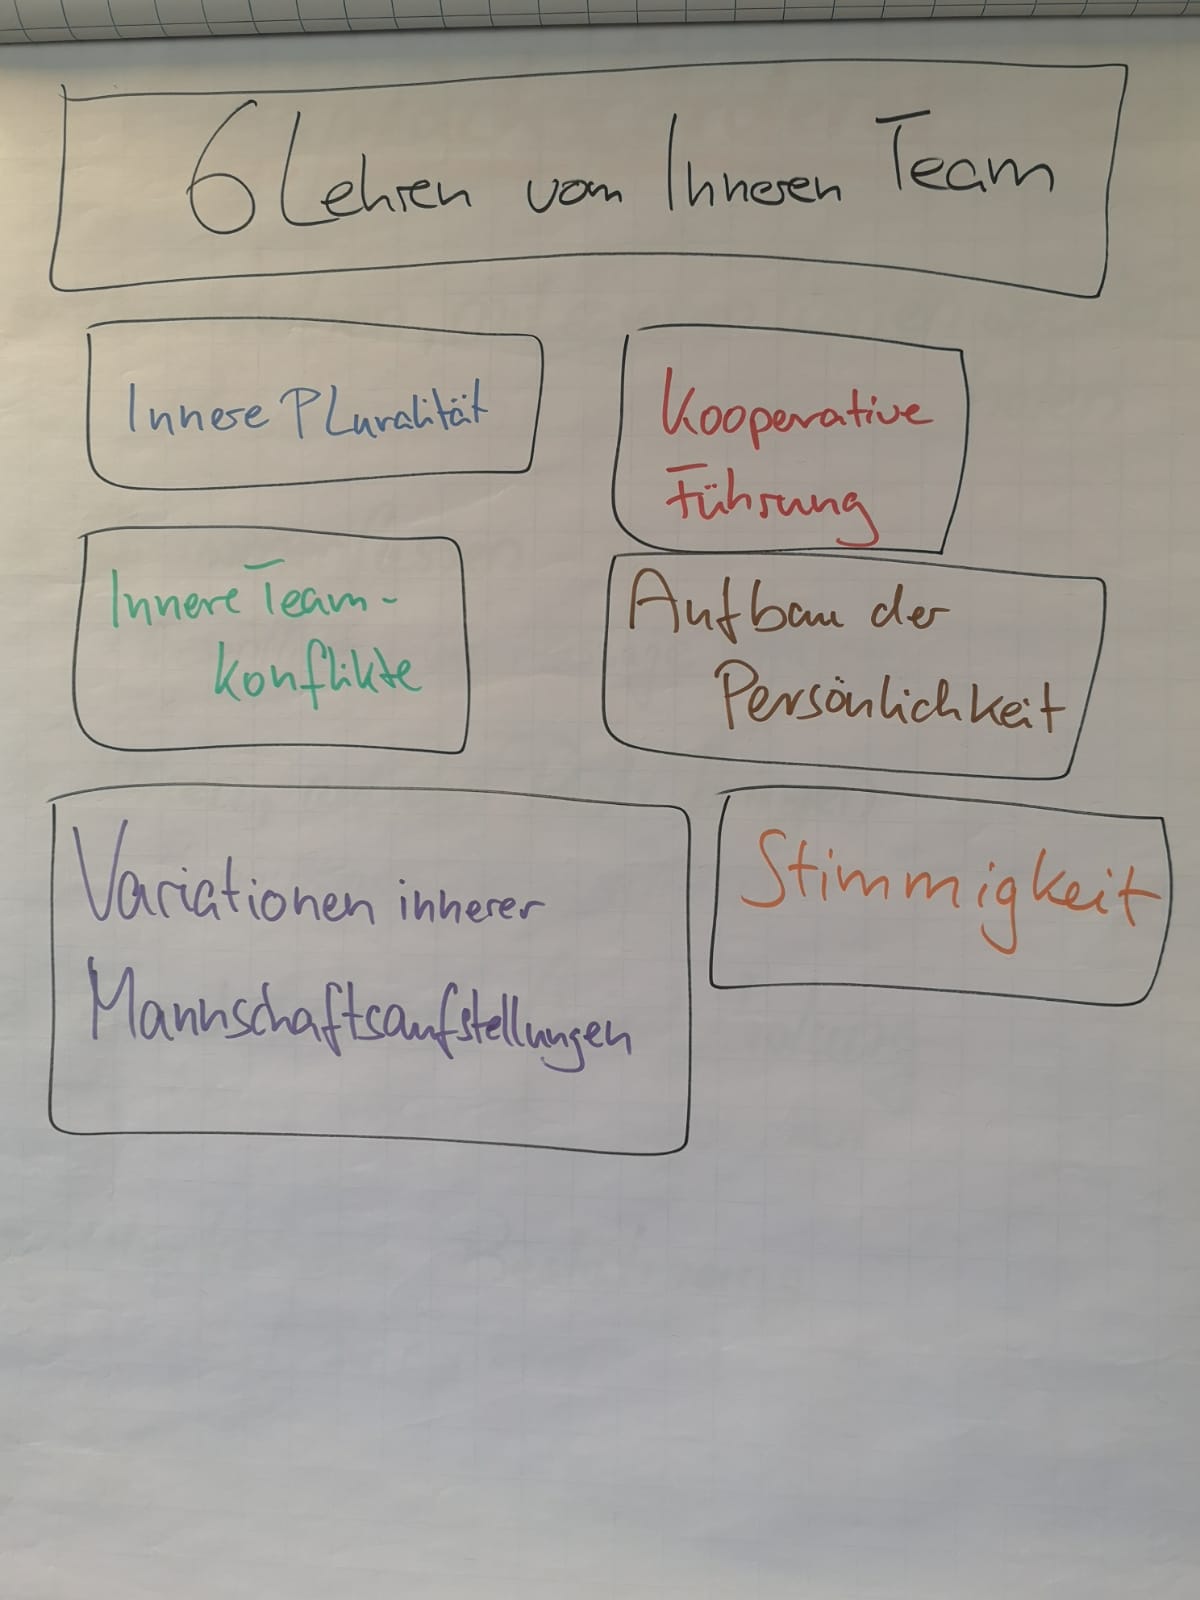 6 Lehren vom Inneren Team
Innere PLuralität
Kooperative
Führung
Innere Team-
konflikte
Aufbau der
Persönlichkeit
Variationen innerer
Mannschaftsaufstellungen
Stimmigkeit